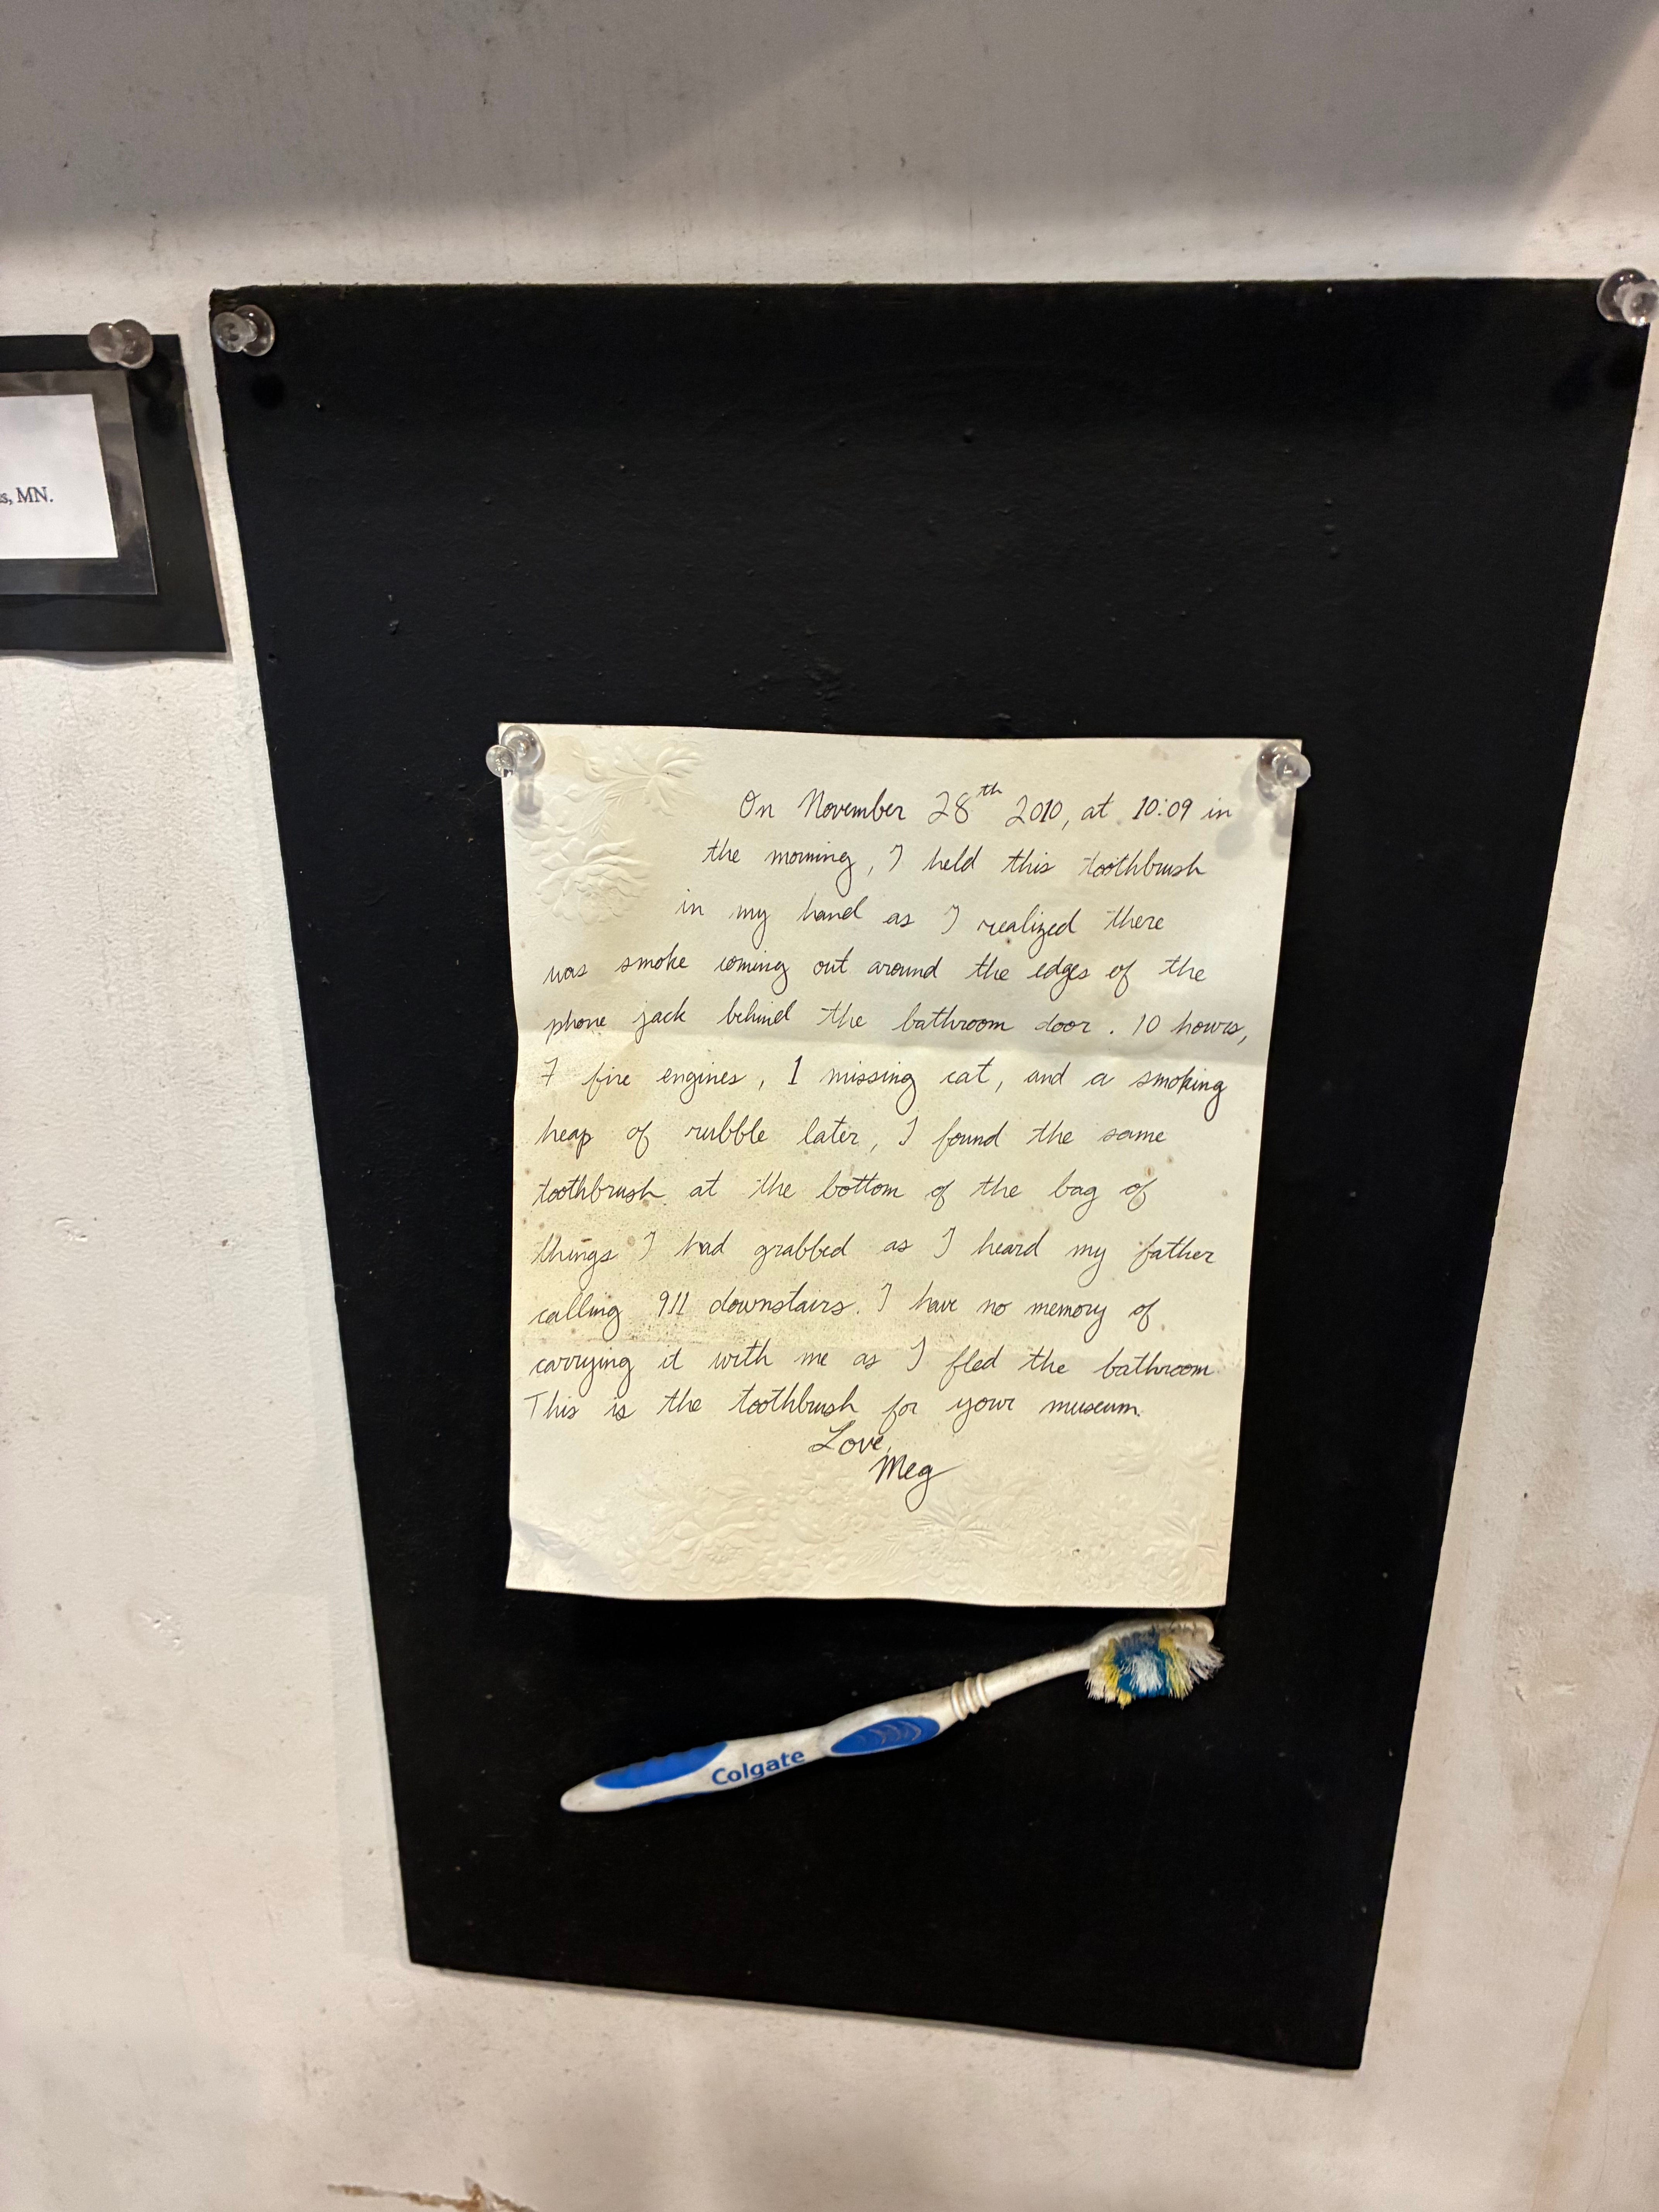 s, MN.
On November 28th 2010, at 10:09 in
the morning, I held this toothbrush
in my hand as I realized there
was smoke coming out around the edges of the
phone jack behind the bathroom door. 10 hours,
7 fire engines, 1 missing cat, and a smoking
heap of rubble later, I found the same
toothbrush at the bottom of the bag of
things I had grabbed as I heard my father
calling 911 downstairs. I have no memory of
carrying it with me as I fled the bathroom
This is the toothbrush for your museum.
Love,
Meg
Colgate